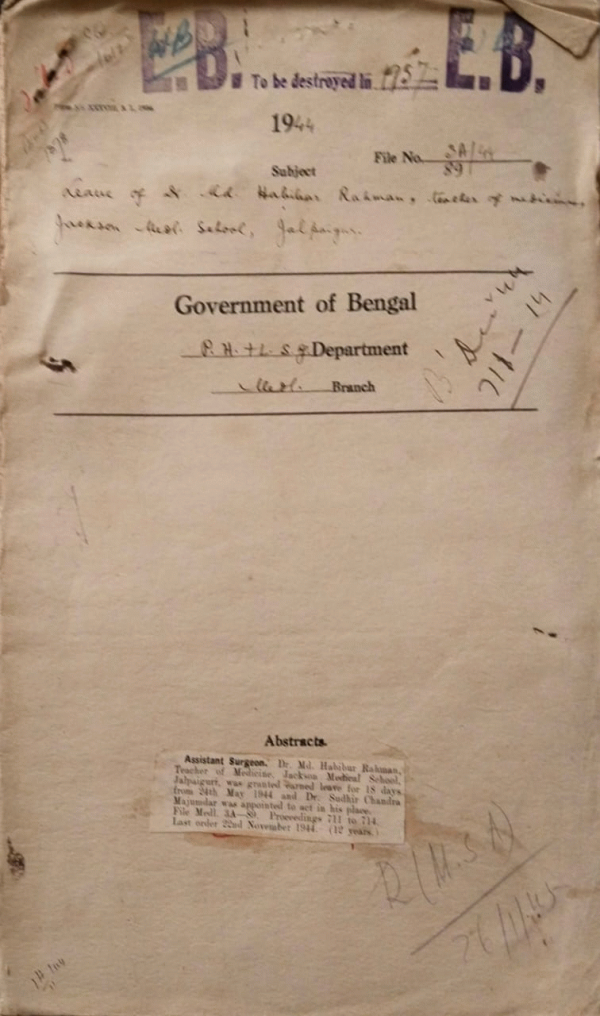 E.B. To be destroyed in 1957 E.B.
1944
File No. 3A/44
89
Subject
Leave of Dr Md. Habibar Rahman, teacher of medicine,
Jackson Medl. School, Jalpaiguri.
Government of Bengal
P. H. + L. S. G. Department
Medl. Branch
Abstracts.
Assistant Surgeon. Dr. Md. Habibur Rahman,
Teacher of Medicine, Jackson Medical School,
Jalpaiguri, was granted earned leave for 18 days
from 24th May 1944 and Dr. Sudhir Chandra
Majumdar was appointed to act in his place.
File Medl. 3A—89. Proceedings 711 to 714.
Last order 22nd November 1944. (12 years.)